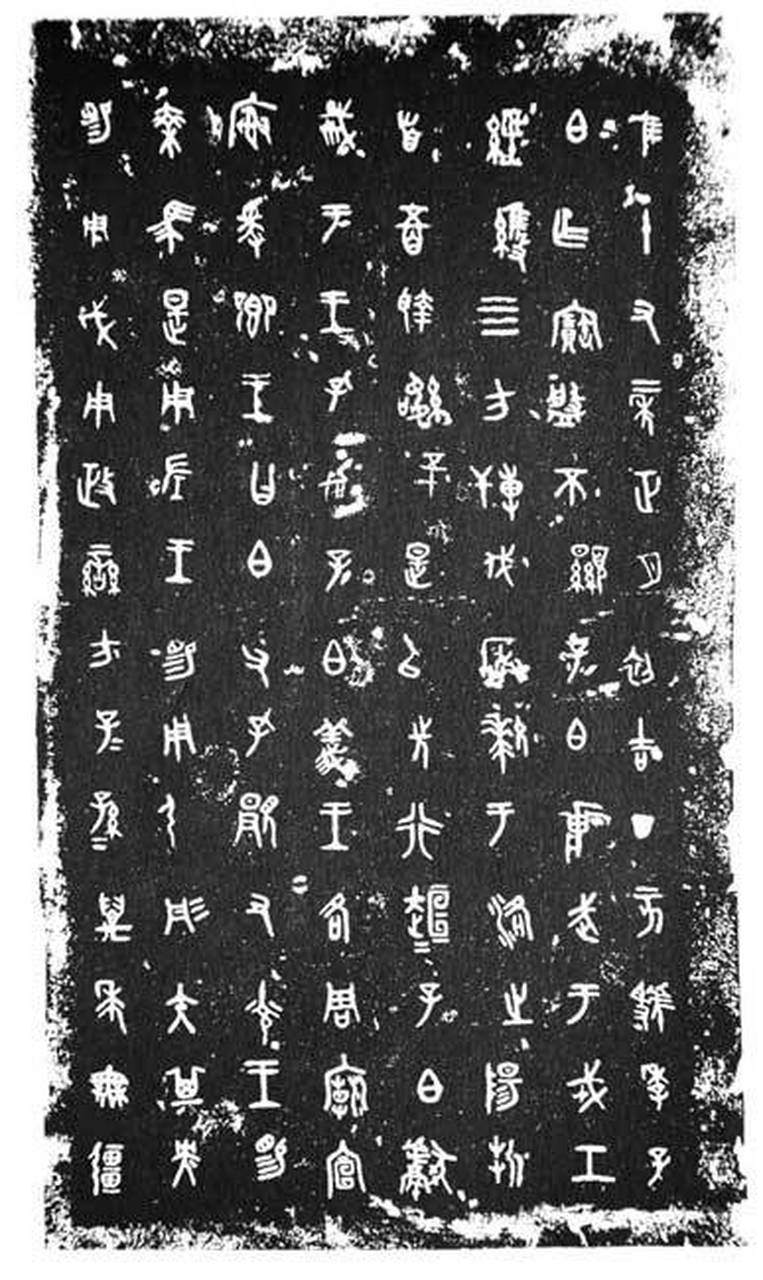 隹十又二年正月初吉丁亥虢季子
白乍寶盤不顯子白𤕌武于戎工
經維四方搏伐玁狁于洛之陽折
首五百執訊五十是以先行趄趄子白獻
馘于王王孔加子白義王各周廟宣
榭爰鄉王曰白父孔顯又光王賜
乘馬是用左王賜用弓彤矢其央
賜用戉用政蠻方子子孫孫萬年無疆